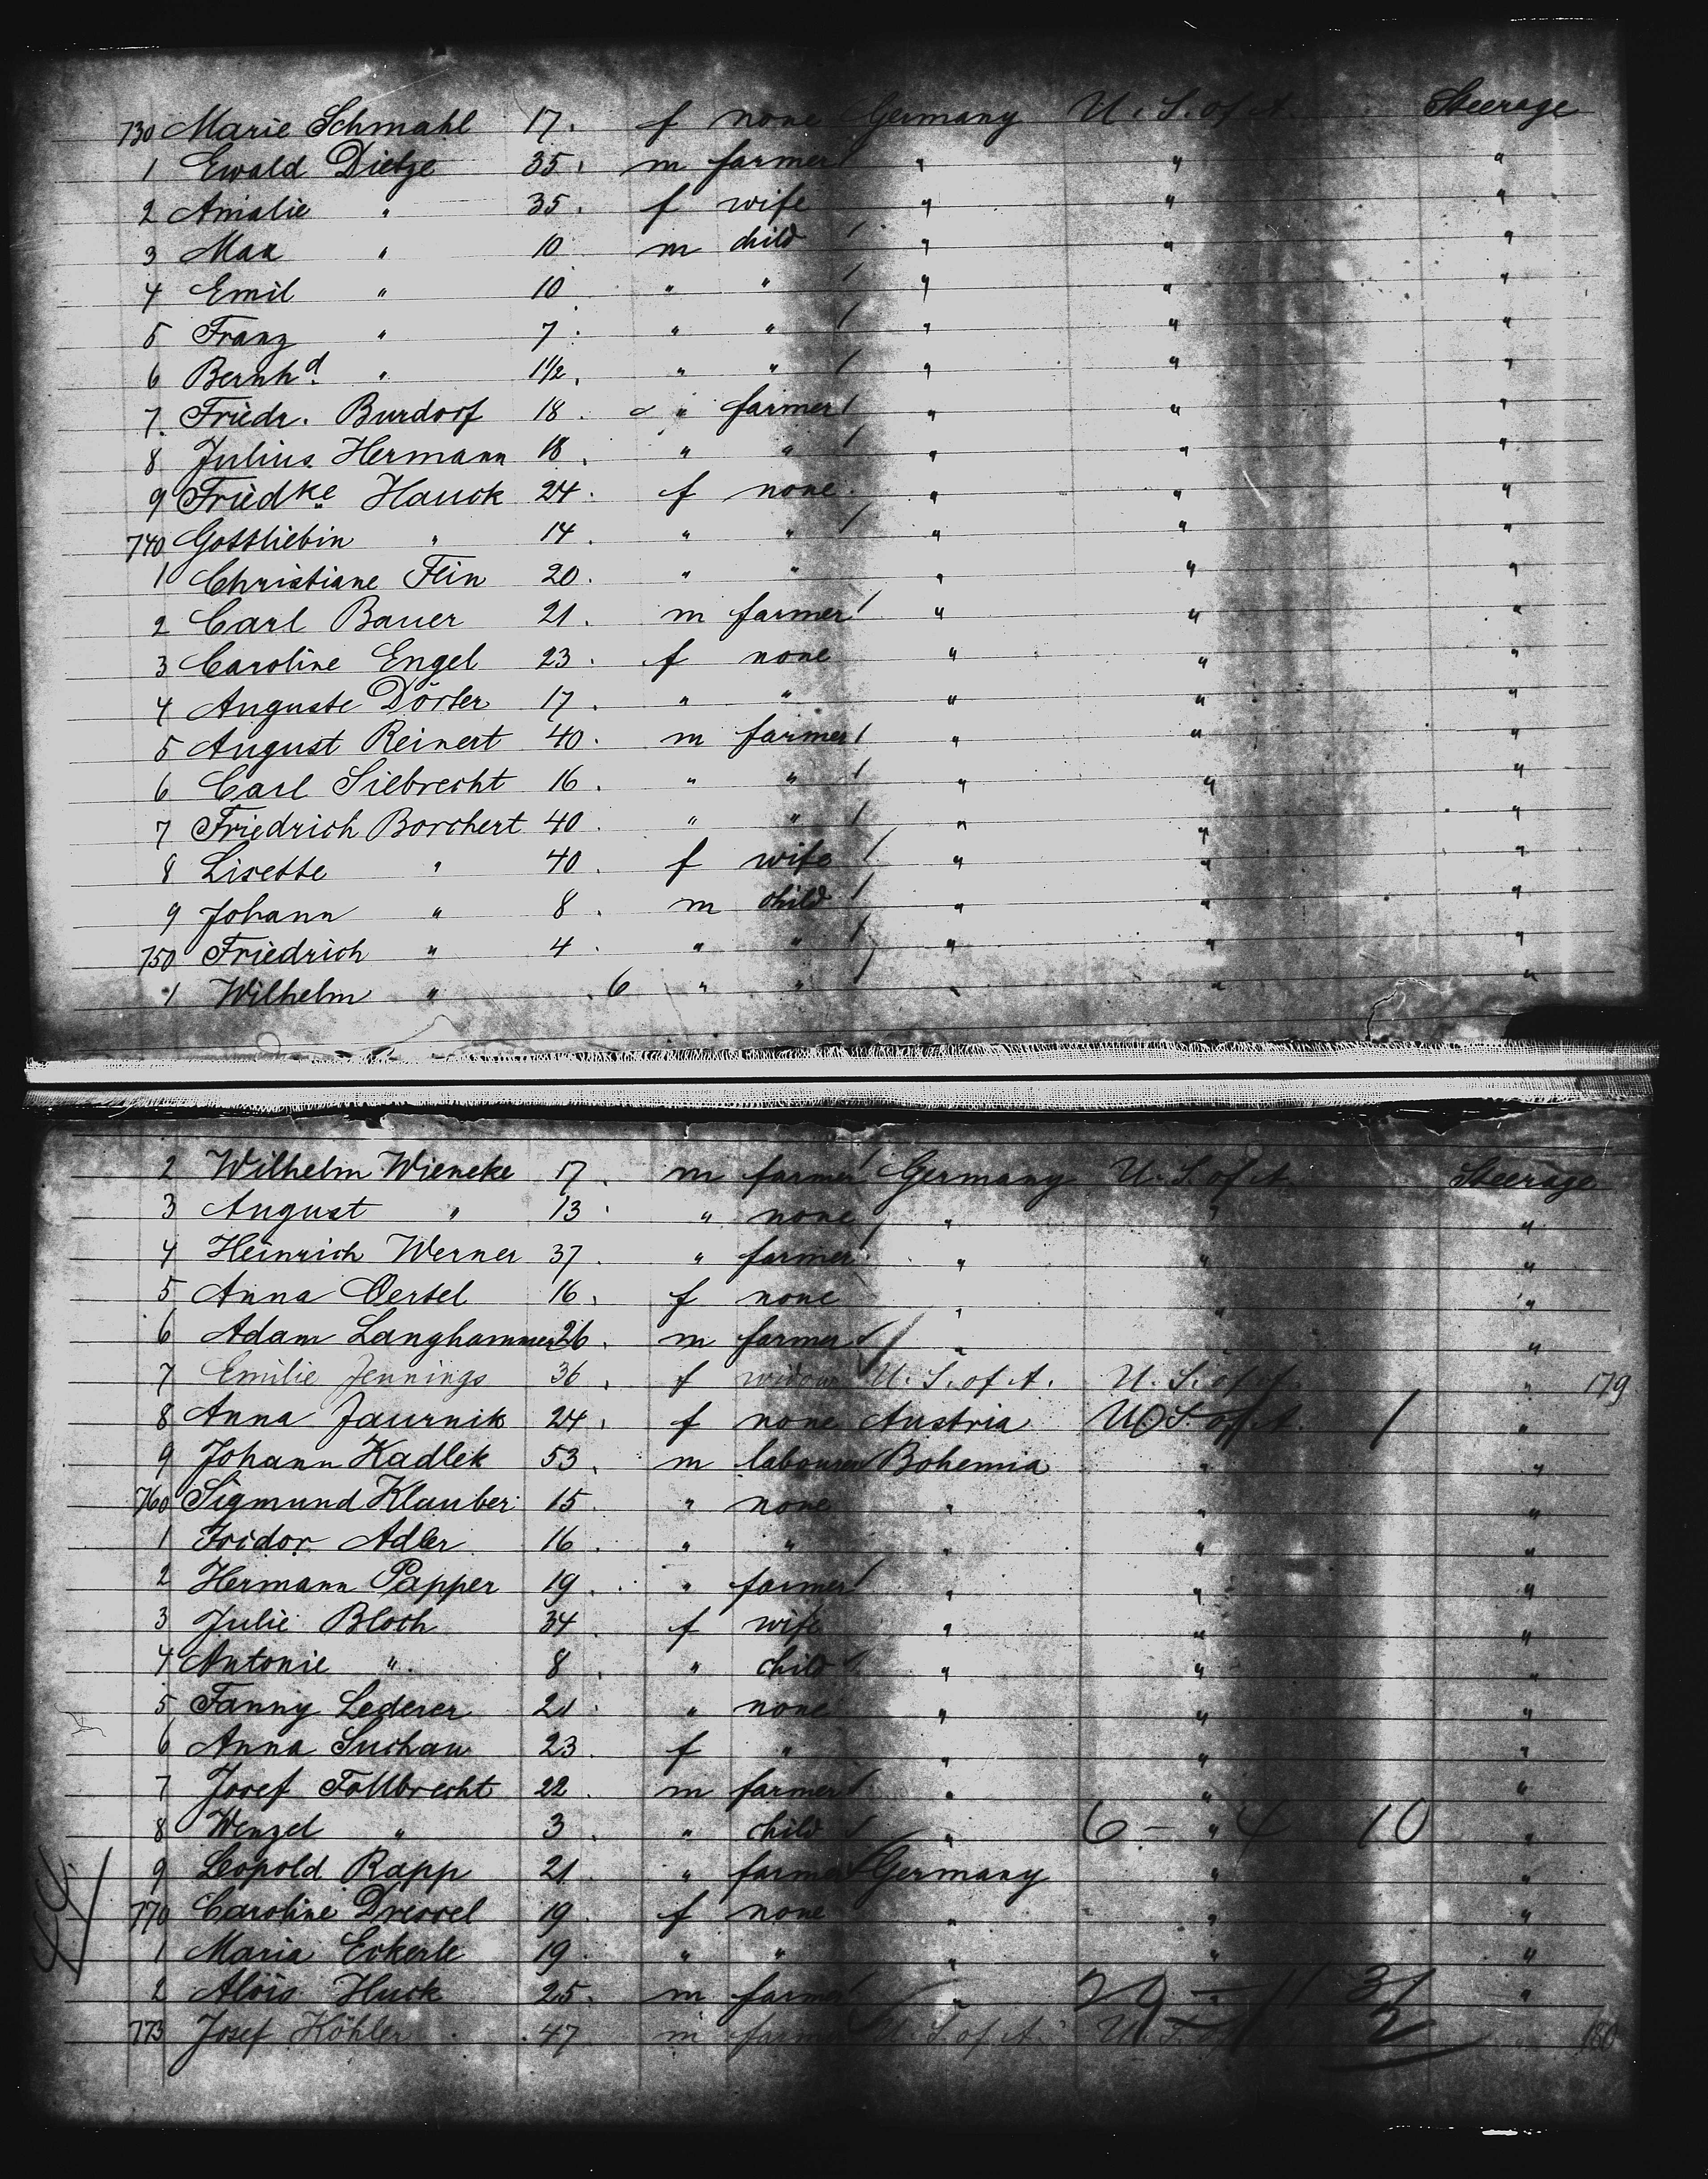 730 Marie Schmahl 17. f none Germany U. S. of A. Steerage
1 Ewald Dietze 35. m farmer " " "
2 Amalie " 35. f wife " " "
3 Max " 10 m child " " "
4 Emil " 10 " " " " "
5 Franz " 7. " " " " "
6 Bernhd. " 1 1/2. " " " " "
7. Friedr. Burdorf 18. " farmer " " "
8 Julius Hermann 18. " " " " "
9 Friedke Hauck 24. f none. " " "
740 Gottliebin " 14. " " " " "
1 Christiane Flin 20. " " " " "
2 Carl Bauer 21. m farmer " " "
3 Caroline Engel 23. f none " " "
4 Auguste Dörfer 17. " " " " "
5 August Reinert 40. m farmer " " "
6 Carl Siebrecht 16. " " " " "
7 Friedrich Borchert 40. " " " " "
8 Lisette " 40. f wife " " "
9 Johann " 8. m child " " "
750 Friedrich " 4. " " " " "
1 Wilhelm " 6 " " " " "
2 Wilhelm Wieneke 17. m farmer Germany U. S. of A. Steerage
3 August " 13. " none " " "
4 Heinrich Werner 37. " farmer " " "
5 Anna Oertel 16. f none " " "
6 Adam Langhammer 26. m farmer " " "
7 Emilie Jennings 36. f widow U. S. of A. U. S. of A. " 179
8 Anna Jaurnik 24. f none Austria U. S. of A. 1 "
9 Johann Kadlek 53. m labourer Bohemia " "
760 Sigmund Klauber 15. " none " " "
1 Isidor Adler 16. " " " " "
2 Hermann Papper 19. " farmer " " "
3 Julie Bloch 34. f wife " " "
4 Antonie " 8. " child " " "
5 Fanny Lederer 21. " none " " "
6 Anna Suchan 23. f " " " "
7 Josef Follbrecht 22. m farmer " " "
8 Wenzel " 3. " child " 6 - " 4 10 "
9 Leopold Rapp 21. " farmer Germany " "
770 Caroline Dressel 19. f none " " "
1 Maria Eckerle 19. " " " " "
2 Alois Huck 25. m farmer " 20 - " 11 31 "
773 Josef Köhler 47 m farmer U. S. of A. U. S. of A. 2 " 180